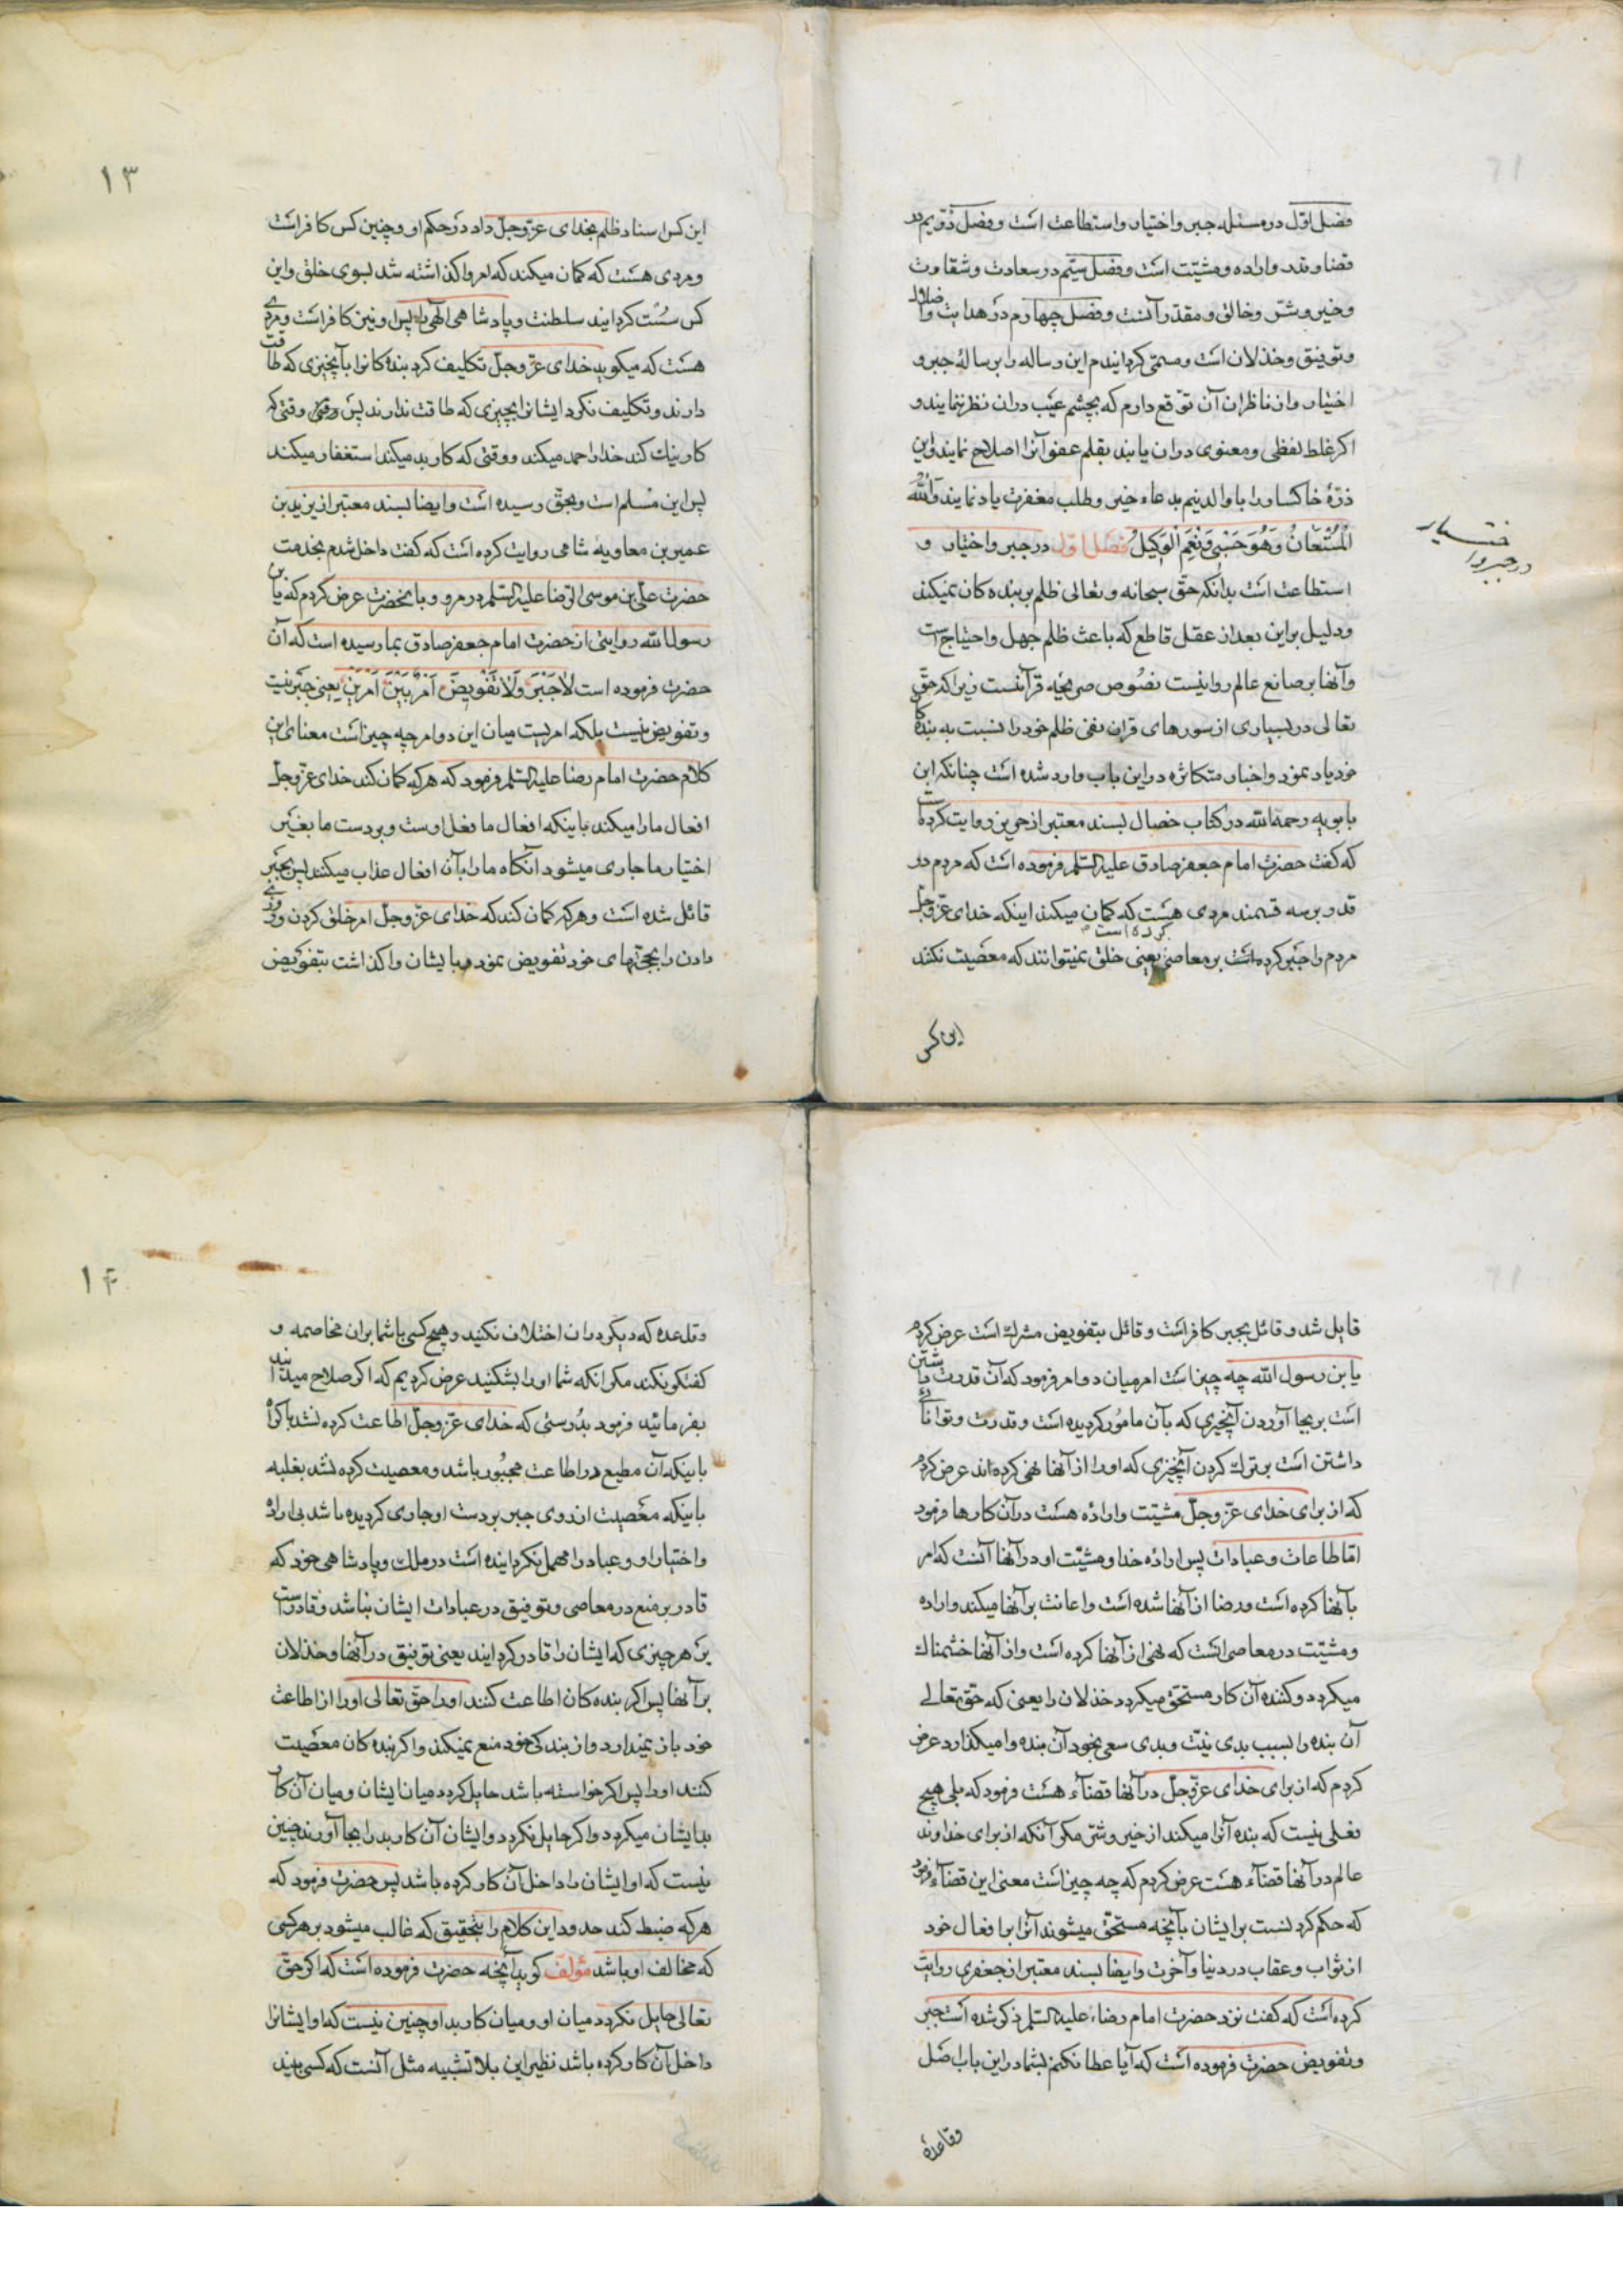 فصل اول در مسئله جبر و اختیار و استطاعت است و فصل دویم در
قضا و قدر و اراده و مشیّت است و فصل سیّم در سعادت و شقاوت
و خیر و شر و خالق و مقدّر آنست و فصل چهارم در هدایت و اضلال
و توفیق و خذلان است و مسمّی کردانیدم این رساله را برسالهٔ جبر و
اختیار و از ناظران آن توقع دارم که بچشم عیب در آن نظر ننمایند و
اکر غلط لفظی و معنوی در آن یابند بقلم عفو آنرا اصلاح نمایند و این
ذرّهٔ خاکسار را با والدینم بدعاء خیر و طلب مغفرت یاد نمایند وَاللهُ
الْمُسْتَعانُ وَهُوَ حَسْبی وَنِعْمَ الْوَکیلُ فصل اوّل در جبر و اختیار و
در جبر و اختیار
استطاعت است بدانکه حقّ سبحانه و تعالی ظلم بر بنده کان نمیکند
و دلیل بر این بعد از عقل قاطع که باعث ظلم جهل و احتیاج است
و آنها بر صانع عالم روا نیست نصُوص صریحهٔ قرآنست زیرا که حقّ
تعالی در بسیاری از سورهای قران نفی ظلم خود را نسبت به بنده کا
خود یاد نمود و اخبار متکاثره در این باب وارد شده است چنانکه ابن
بابویه رحمه الله در کتاب خصال بسند معتبر از حریز روایت کرده است
که کفت حضرت امام جعفر صادق علیه السّلم فرموده است که مردم در
قدر بر سه قسمند مردی هست که کمان میکند اینکه خدای عزّ و جلّ
کرده است
مردم را جبر کرده است بر معاصی یعنی خلق نمیتوانند که معصیت نکنند
این کس
۱۳
این کس اسناد ظلم بخدای عزّ و جلّ داد در حکم او و چنین کس کافر است
و مردی هست که کمان میکند که امر واکذاشته شد بسوی خلق و این
کس سُست کردانید سلطنت و پادشاهی الهی را پس او نیز کافر است و مردی
هست که میکوید خدای عزّ و جلّ تکلیف کرد بنده کانرا بآنچیزی که طاقت
دارند و تکلیف نکرد ایشانرا بچیزی که طاقت ندارند پس وقتی که
کار نیک کند خدا را حمد میکند و وقتی که کار بد میکند استغفار میکند
پس این مسلم است و بحقّ رسیده است و ایضا بسند معتبر از یزید بن
عمیر بن معاویه شامی روایت کرده است که کفت داخل شدم بخدمت
حضرت علّی بن موسی الرّضا علیه السّلم در مرو و بآنحضرت عرض کردم که یا بن
رسول الله روایتی از حضرت امام جعفر صادق بما رسیده است که آن
حضرت فرموده است لاجَبْرَ وَلَا تَفْویضَ اَمْرٌ بَیْنَ اَمْرَیْنِ یعنی جبر نیست
و تفویض نیست بلکه امریست میان این دو امر چه چیز است معنای این
کلام حضرت امام رضا علیه السّلم فرمود که هر که کمان کند خدای عزّ و جلّ
افعال ما را میکند باینکه افعال ما فعل اوست و بر دست ما بغیر
اختیار ما جاری میشود آنکاه ما را بآن افعال عذاب میکند پس بجبر
قائل شده است و هر که کمان کند که خدای عزّ و جلّ امر خلق کردن و روزی
دادن را بحجّتهای خود تفویض نمود و بایشان واکذاشت بتفویض
قایل شد و قائل بجبر کافر است و قائل بتفویض مشرک است عرض کردم
یا بن رسول الله چه چیز است امر میان دو امر فرمود که آن قدرت داشتن
است بر بجا آوردن آنچیزی که بآن مامُور کردیده است و قدرت و توانائی
داشتن است بر ترک کردن آنچیزی که او را از آنها نهی کرده اند عرض کردم
که از برای خدای عزّ و جلّ مشیّت و ارادهٔ هست در آن کارها فرمود
امّا طاعات و عبادات پس ارادهٔ خدا و مشیّت او در آنها آنست که امر
بآنها کرده است و رضا از آنها شده است و اعانت بر آنها میکند و اراده
و مشیّت در معاصی آنست که نهی از آنها کرده است و از آنها خشمناک
میکردد و کنندهٔ آن کار مستحقّ میکردد خذلان را یعنی که حقّ تعالی
آن بنده را بسبب بدی نیّت و بدی سعی بخود آن بنده وا میکذارد عرض
کردم که از برای خدای عزّ و جلّ در آنها قضآء هست فرمود که بلی هیچ
فعلی نیست که بنده آنرا میکند از خیر و شرّ مکر آنکه از برای خداوند
عالم در آنها قضآء هست عرض کردم که چه چیز است معنی این قضآء فرمود
که حکم کردنست بر ایشان بآنچه مستحقّ میشوند آنرا بر افعال خود
از ثواب و عقاب در دنیا و آخرت و ایضا بسند معتبر از جعفری روایت
کرده است که کفت نزد حضرت امام رضاء علیه السّلم ذکر شده است جبر
و تفویض حضرت فرموده است که آیا عطا نکنم بشما در این باب اصل
و قاعدهٔ
۱۴
و قاعده که دیکر در آن اختلاف نکنید و هیچ کسی با شما بر آن مخاصمه و
کفتکو نکند مکر انکه شما او را بشکنید عرض کردیم که اکر صلاح میدانید
بفرمائید فرمود بدُرستی که خدای عزّ و جلّ اطاعت کرده نشد باکراه
باینکه آن مطیع در اطاعت مجبُور باشد و معصیت کرده نشد بغلبه
باینکه معصیت از روی جبر بر دست او جاری کردیده باشد بی اراده
و اختیار او و عباد را مهمل نکردانیده است در ملک و پادشاهی خود که
قادر بر منع در معاصی و توفیق در عبادات ایشان نباشد و قادر است
بر هر چیزی که ایشان را قادر کردانید یعنی توفیق در آنها و خذلان
بر آنها پس اکر بنده کان اطاعت کنند او را حقّ تعالی او را از اطاعت
خود باز نمیدارد و از بندکی خود منع نمیکند و اکر بنده کان معصیت
کنند او را پس اکر خواسته باشد حایل کردد میان ایشان و میان آن کار
بد ایشان میکردد و اکر حایل نکردد و ایشان آن کار بد را بجا آورند چنین
نیست که او ایشان را داخل آن کار کرده باشد پس حضرت فرمود که
هر که ضبط کند حدود این کلام را بتحقیق که غالب میشود بر هر کسی
که مخالف او باشد مؤلف کوید آنچه حضرت فرموده است که اکر حقّ
تعالی حایل نکردد میان او و میان کار بد او چنین نیست که او ایشانرا
داخل آن کار کرده باشد نظیر این بلا تشبیه مثل آنست که کسی بیند